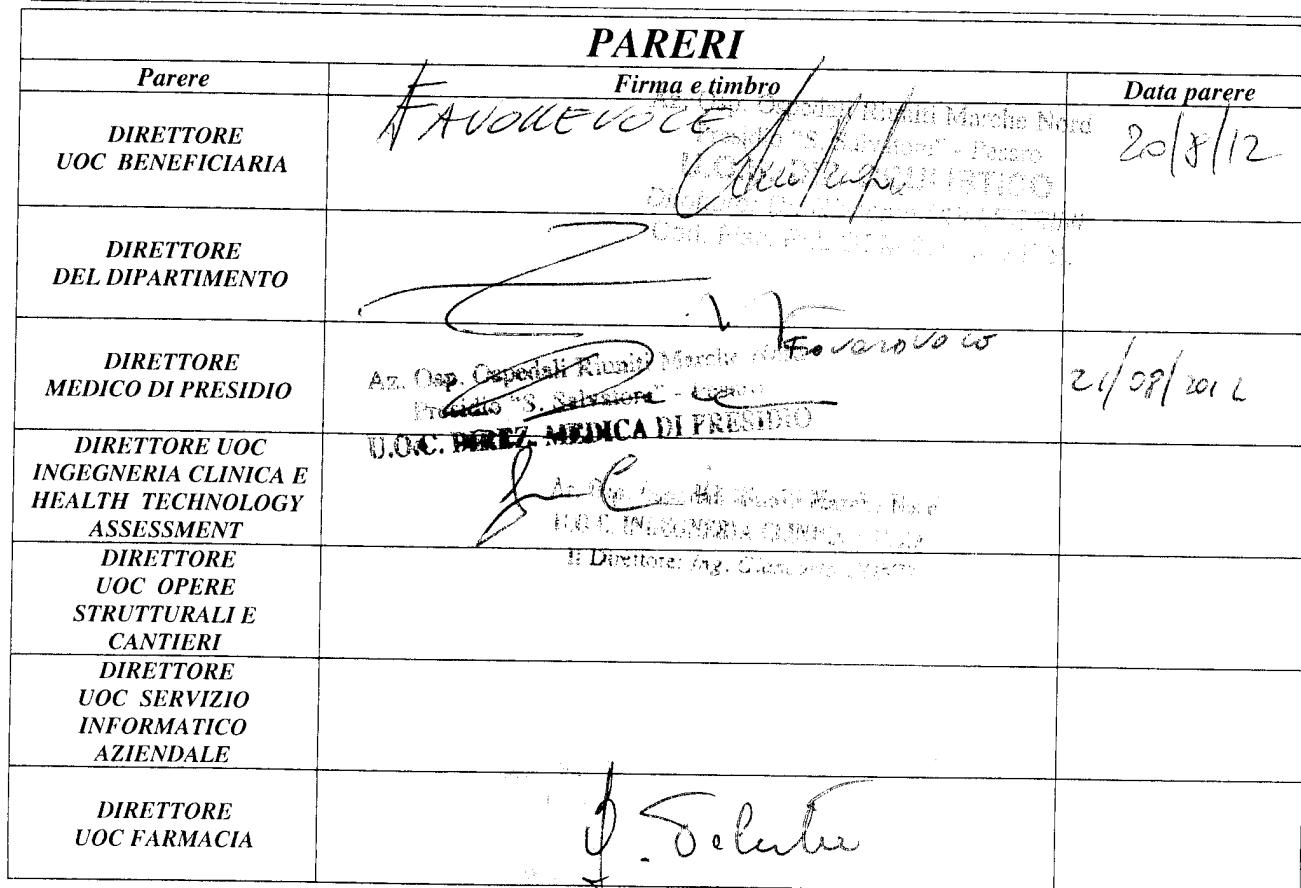 PARERI
Parere Firma e timbro Data parere
DIRETTORE
UOC BENEFICIARIA
FAVOREVOLE
Az. Osp. Ospedali Riuniti Marche Nord
Presidio "S. Salvatore" - Pesaro
20/8/12
DIRETTORE
DEL DIPARTIMENTO
DIRETTORE
MEDICO DI PRESIDIO
Az. Osp. Ospedali Riuniti Marche
Presidio "S. Salvatore" -
U.O.C. DIREZ. MEDICA DI PRESIDIO
21/08/2012
DIRETTORE UOC
INGEGNERIA CLINICA E
HEALTH TECHNOLOGY
ASSESSMENT
Marche Nord
U.O.C. INGEGNERIA CLINICA
Il Direttore: Ing.
DIRETTORE
UOC OPERE
STRUTTURALI E
CANTIERI
DIRETTORE
UOC SERVIZIO
INFORMATICO
AZIENDALE
DIRETTORE
UOC FARMACIA